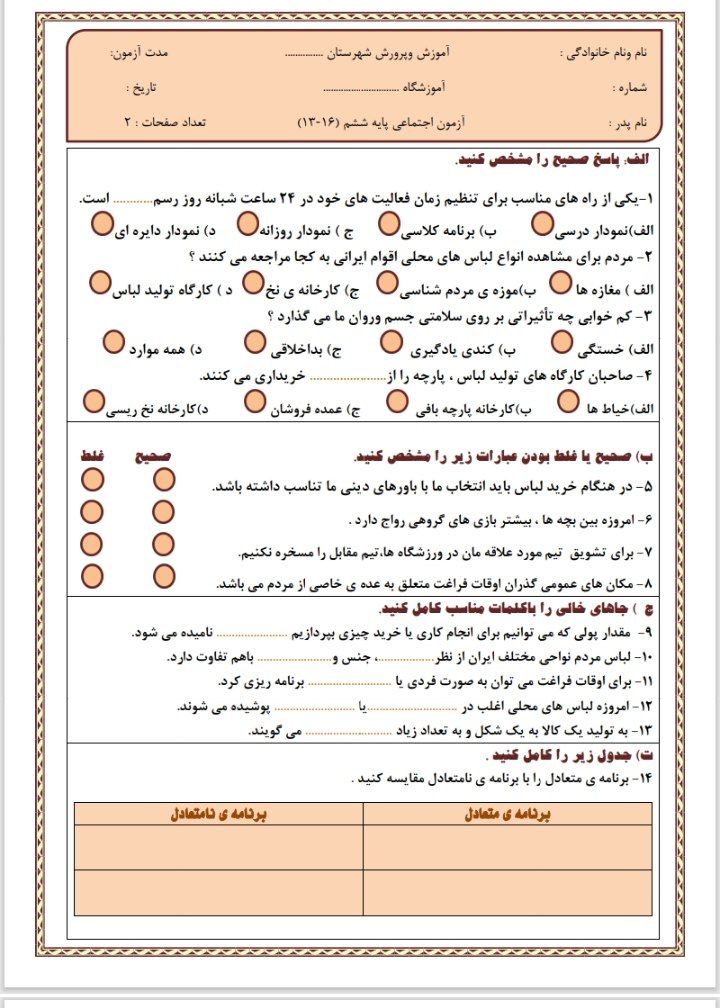 نام ونام خانوادگی : آموزش وپرورش شهرستان ............... مدت آزمون:
شماره : آموزشگاه .............................. تاریخ :
نام پدر : آزمون اجتماعی پایه ششم (۱۶-۱۳) تعداد صفحات : ۲
الف: پاسخ صحیح را مشخص کنید.
۱-یکی از راه های مناسب برای تنظیم زمان فعالیت های خود در ۲۴ ساعت شبانه روز رسم............ است.
الف)نمودار درسی ب) برنامه کلاسی ج ) نمودار روزانه د) نمودار دایره ای
۲- مردم برای مشاهده انواع لباس های محلی اقوام ایرانی به کجا مراجعه می کنند ؟
الف ) مغازه ها ب)موزه ی مردم شناسی ج) کارخانه ی نخ د ) کارگاه تولید لباس
۳- کم خوابی چه تأثیراتی بر روی سلامتی جسم وروان ما می گذارد ؟
الف) خستگی ب) کندی یادگیری ج) بداخلاقی د) همه موارد
۴- صاحبان کارگاه های تولید لباس ، پارچه را از....................... خریداری می کنند.
الف)خیاط ها ب)کارخانه پارچه بافی ج) عمده فروشان د)کارخانه نخ ریسی
ب) صحیح یا غلط بودن عبارات زیر را مشخص کنید. صحیح غلط
۵- در هنگام خرید لباس باید انتخاب ما با باورهای دینی ما تناسب داشته باشد.
۶- امروزه بین بچه ها ، بیشتر بازی های گروهی رواج دارد .
۷- برای تشویق تیم مورد علاقه مان در ورزشگاه ها،تیم مقابل را مسخره نکنیم.
۸- مکان های عمومی گذران اوقات فراغت متعلق به عده ی خاصی از مردم می باشد.
ج ) جاهای خالی را باکلمات مناسب کامل کنید.
۹- مقدار پولی که می توانیم برای انجام کاری یا خرید چیزی بپردازیم ...................... نامیده می شود.
۱۰- لباس مردم نواحی مختلف ایران از نظر.................، جنس و....................... باهم تفاوت دارد.
۱۱- برای اوقات فراغت می توان به صورت فردی یا .......................... برنامه ریزی کرد.
۱۲- امروزه لباس های محلی اغلب در ...........................یا ......................... پوشیده می شوند.
۱۳- به تولید یک کالا به یک شکل و به تعداد زیاد ........................... می گویند.
ت) جدول زیر را کامل کنید .
۱۴- برنامه ی متعادل را با برنامه ی نامتعادل مقایسه کنید .
برنامه ی متعادل برنامه ی نامتعادل